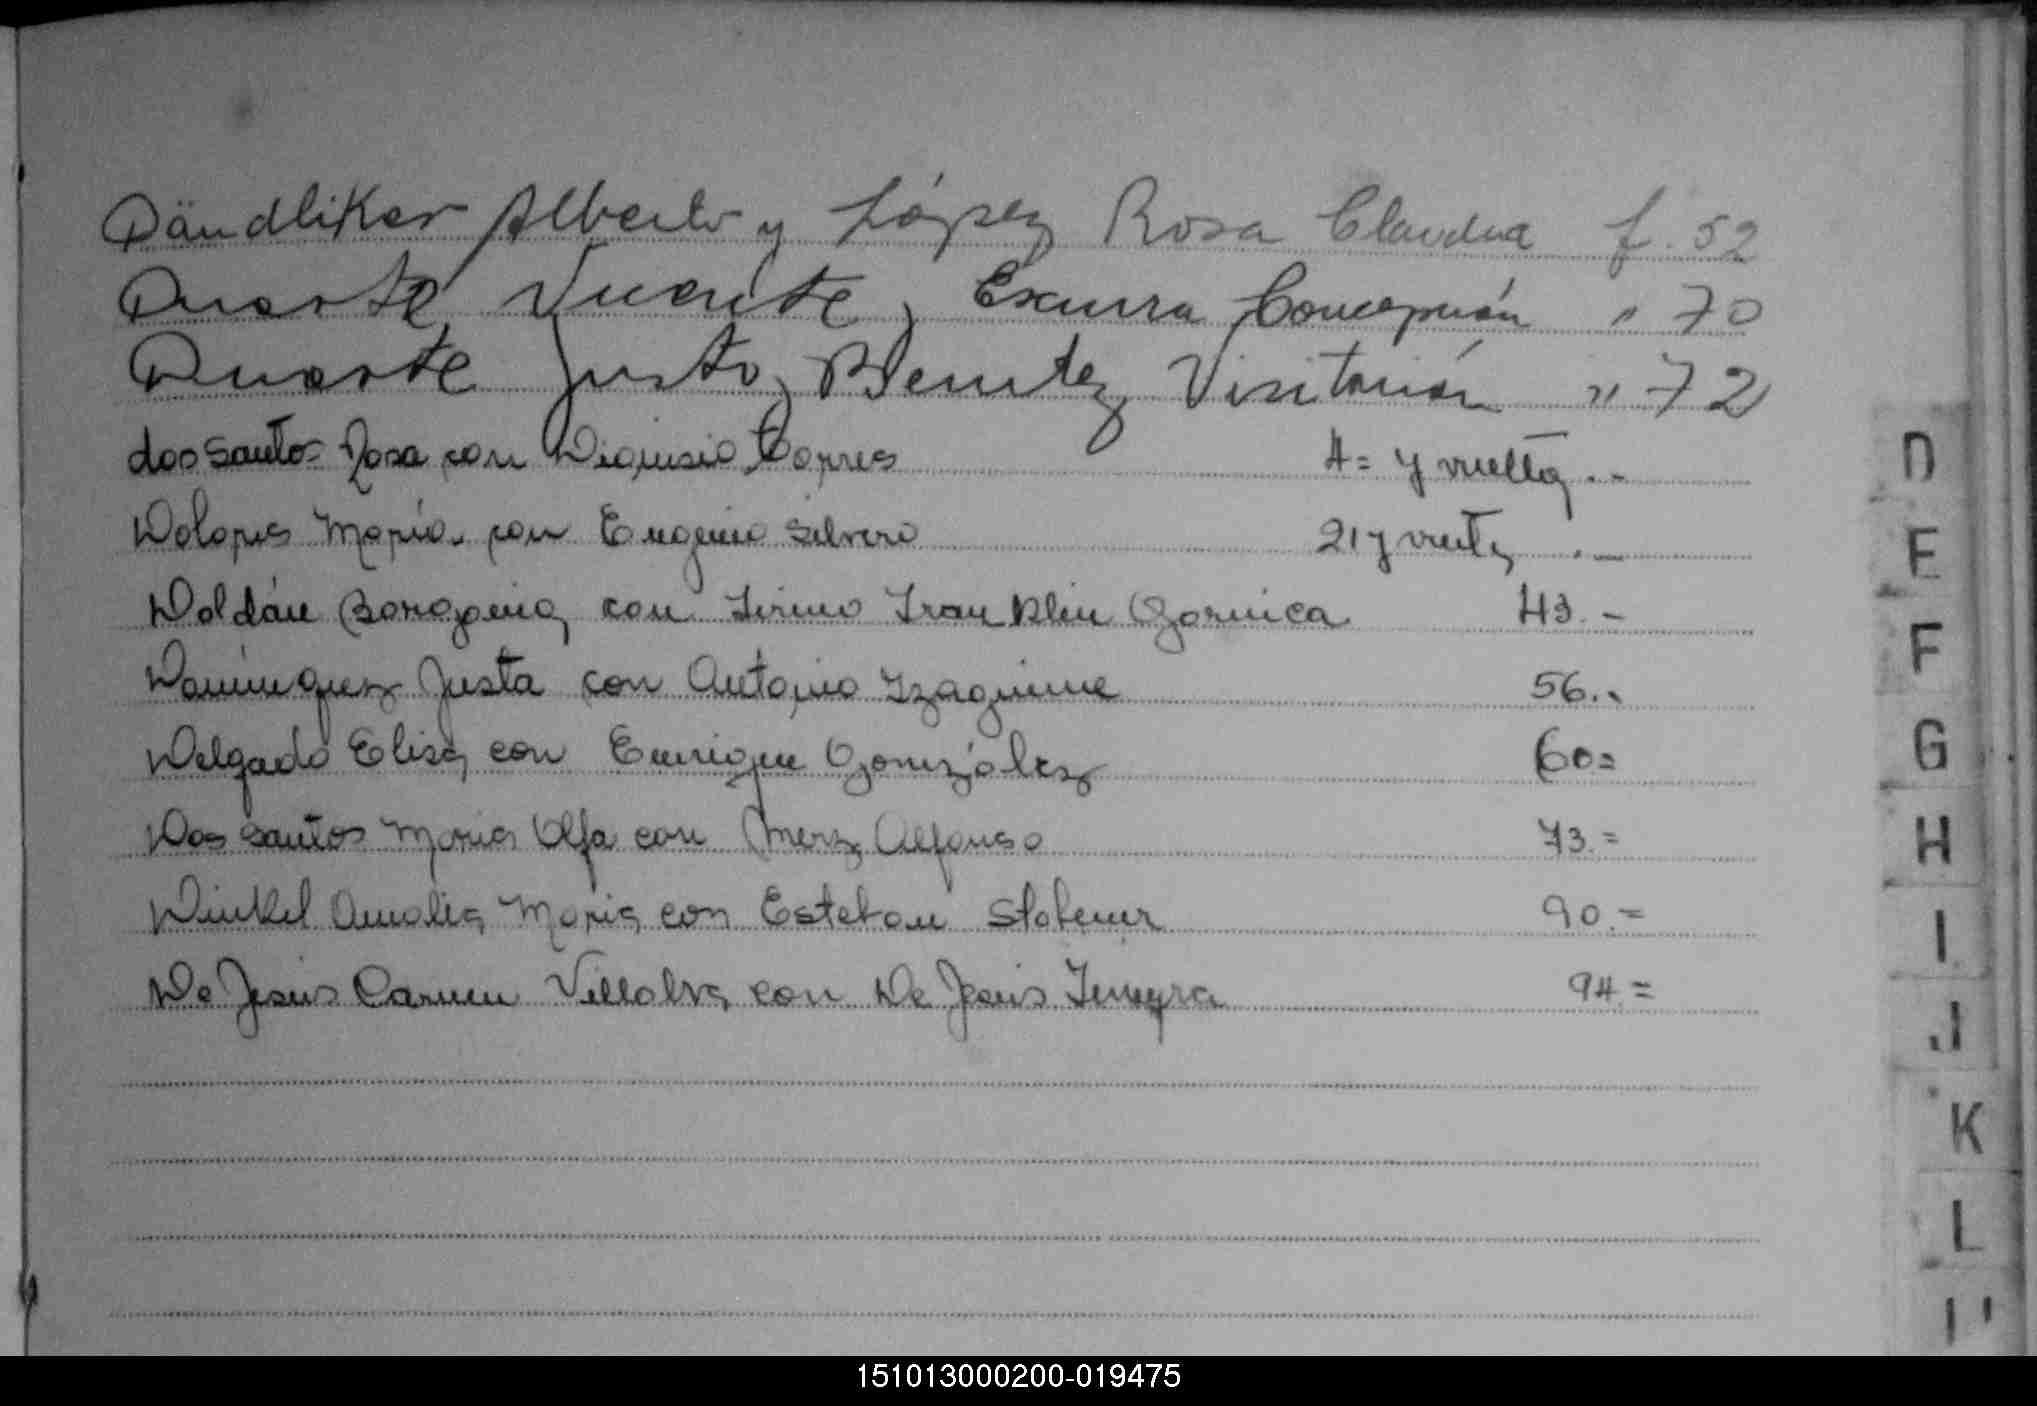 Dändliker Alberto y López Rosa Claudia f. 52
Duarte Vicente, Excurra Concepción " 70
Duarte Justo, Benitez Visitación " 72
dos santos Rosa con Dionisio Torres 4= y vuelta .-
Dolores María con Eugenio Silvero 21 y vuelta .-
Doldán con Franklin Garnica 43.-
Domínguez Justa con Antonio Izaguirre 56.-
Delgado Elisa con Enrique González 60=
Dos santos María Olfa con Merz Alfonso 73.=
Dinkel Amalia María con Esteban 90.=
De Jesús Carmen Villalva con De Jesús 94.=
D
E
F
G
H
I
J
K
L
151013000200-019475